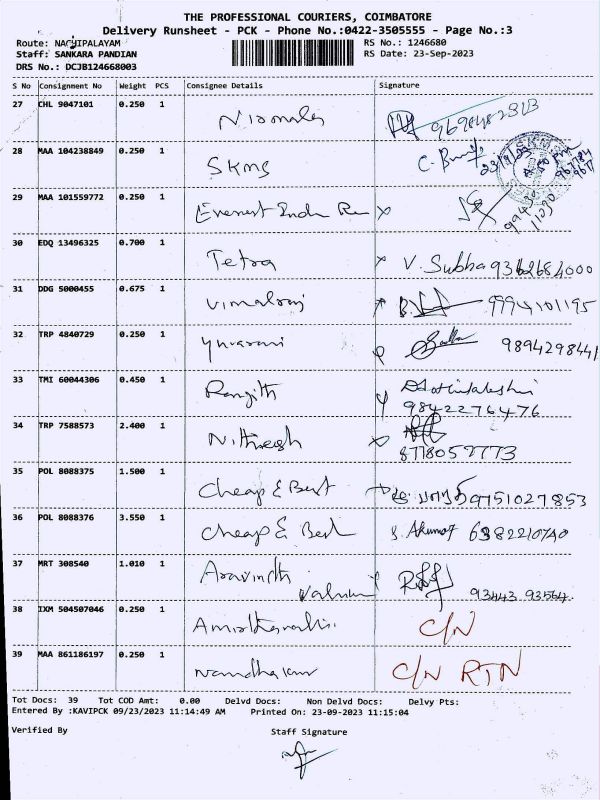 THE PROFESSIONAL COURIERS, COIMBATORE
Delivery Runsheet - PCK - Phone No.:0422-3505555 - Page No.:3
Route: NACHIPALAYAM RS No.: 1246680
Staff: SANKARA PANDIAN RS Date: 23-Sep-2023
DRS No.: DCJB124668003
S No Consignment No Weight PCS Consignee Details Signature
27 CHL 9047101 0.250 1
28 MAA 104238849 0.250 1 SKMS
29 MAA 101559772 0.250 1 Everest
30 EDQ 13496325 0.700 1 Tetra V. Subha 9362684000
31 DDG 5000455 0.675 1 Vimalraj 9994101195
32 TRP 4840729 0.250 1 Yuvarani 9894298441
33 TMI 60044306 0.450 1 Ranjith
9842276476
34 TRP 7588573 2.400 1 Nithresh
8778057773
35 POL 8088375 1.500 1 Cheap & Best 9751027853
36 POL 8088376 3.550 1 Cheap & Best 6382210740
37 MRT 308540 1.010 1 Aravinth
93443 93564
38 IXM 504507046 0.250 1 C/N
39 MAA 861186197 0.250 1 Nandhakumar C/N RTN
Tot Docs: 39 Tot COD Amt: 0.00 Delvd Docs: Non Delvd Docs: Delvy Pts:
Entered By :KAVIPCK 09/23/2023 11:14:49 AM Printed On: 23-09-2023 11:15:04
Verified By Staff Signature